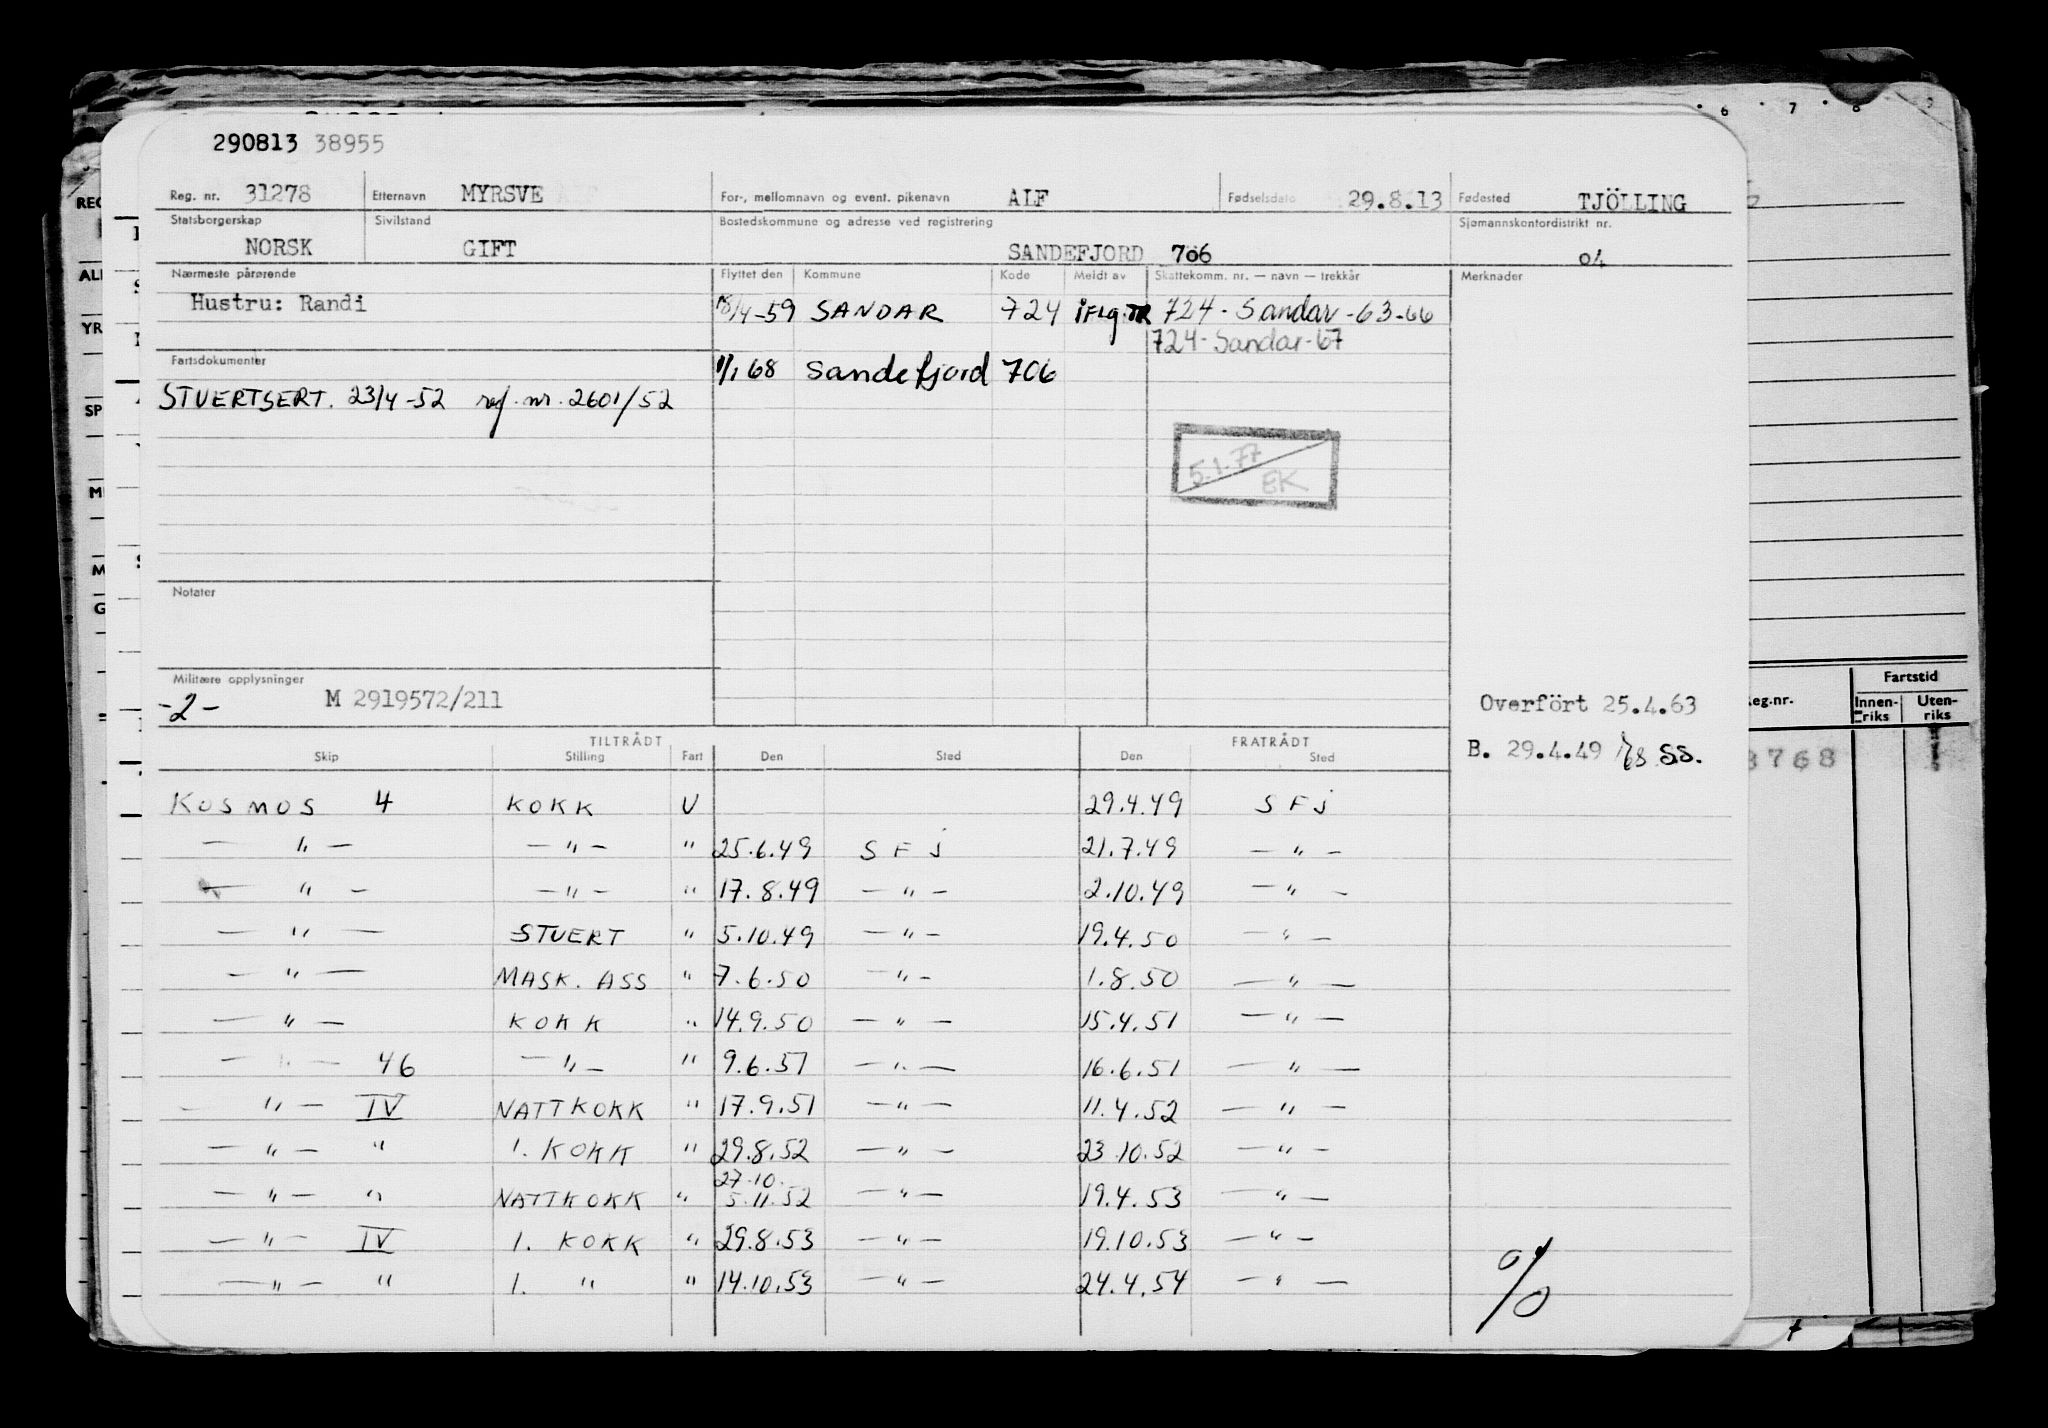 290813 38955
Reg. nr. 31278 Etternavn MYRSVE For-, mellomnavn og event. pikenavn ALF Fødselsdato 29.8.13 Fødested TJÖLLING
Statsborgerskap NORSK Sivilstand GIFT Bostedskommune og adresse ved registrering SANDEFJORD 706 Sjømannskontordistrikt nr. 04
Nærmeste pårørende Flyttet den Kommune Kode Meldt av Skattekomm. nr. — navn — trekkår Merknader
Hustru: Randi
18/4-59 SANDAR 724 IFLG.TR 724 - Sandar - 63-66
724 - Sandar - 67
Fartsdokumenter
1/1 68 Sandefjord 706
STUERTSERT. 23/4-52 ref. nr. 2601/52
5.1.77
EK
Notater
Militære opplysninger
-2- M 2919572/211
Overfört 25.4.63
B. 29.4.49 SS.
TILTRÅDT FRATRÅDT
Skip Stilling Fart Den Sted Den Sted
KOSMOS 4 KOKK U 29.4.49 S F j
— " — — " — " 25.6.49 S F j 21.7.49 — " —
— " — — " — " 17.8.49 — " — 2.10.49 — " —
— " — STUERT " 5.10.49 — " — 19.4.50 — " —
— " — MASK. ASS " 7.6.50 — " — 1.8.50 — " —
— " — KOKK " 14.9.50 — " — 15.4.51 — " —
— " — 46 — " — " 9.6.51 — " — 16.6.51 — " —
— " — IV NATTKOKK " 17.9.51 — " — 11.4.52 — " —
— " — " 1. KOKK " 29.8.52 — " — 23.10.52 — " —
27.10.
— " — " NATTKOKK " 5.11.52 — " — 19.4.53 — " —
— " — IV 1. KOKK " 29.8.53 — " — 19.10.53 — " —
— " — " 1. " " 14.10.53 — " — 24.4.54 — " —
%
6 7 8 9
Reg.nr. Fartstid
Innen-riks Uten-riks
3768